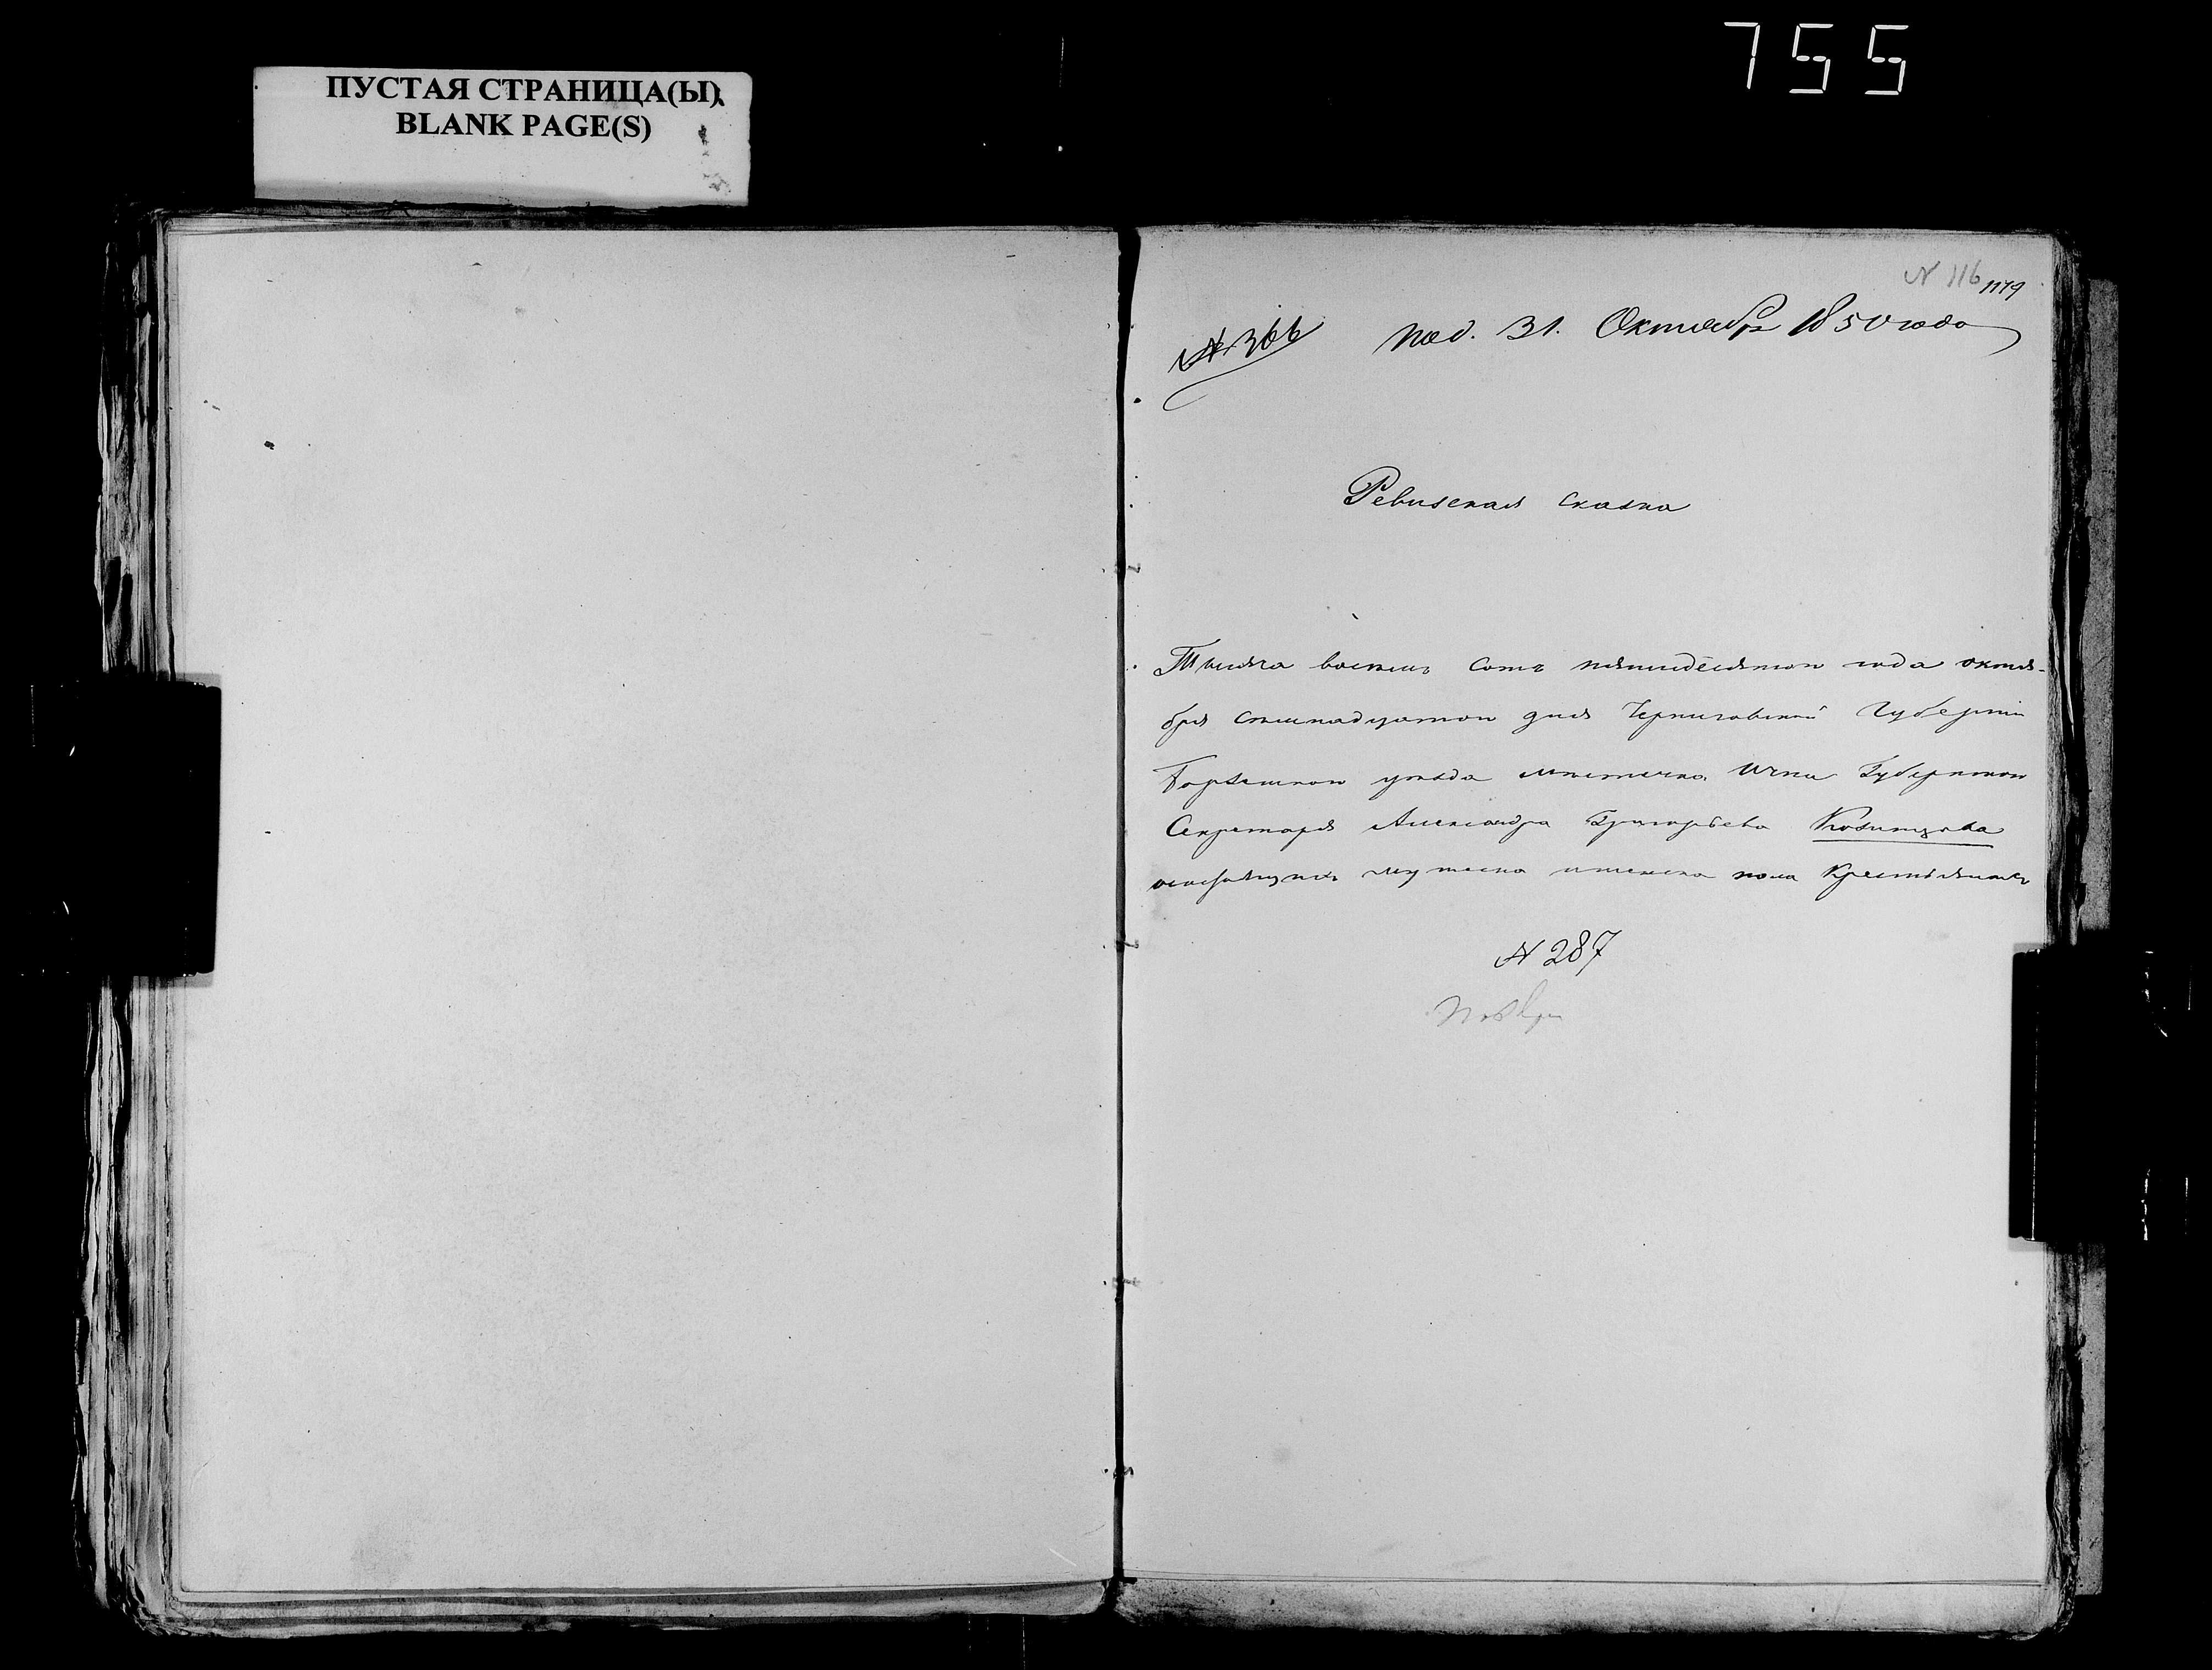 755
ПУСТАЯ СТРАНИЦА(Ы)
BLANK PAGE(S)
N 116 1179
№ 366 Под. 31. Октября 1850 года
Ревизская сказка
Тысяча восемь сотъ пятидесятого года октя-
бря дня Черниговской Губерніи
Борзенского уезда местечка Ични Губернского
Секретаря Александра Григорьева
мужеска и женска пола Крестьянахъ
N 287